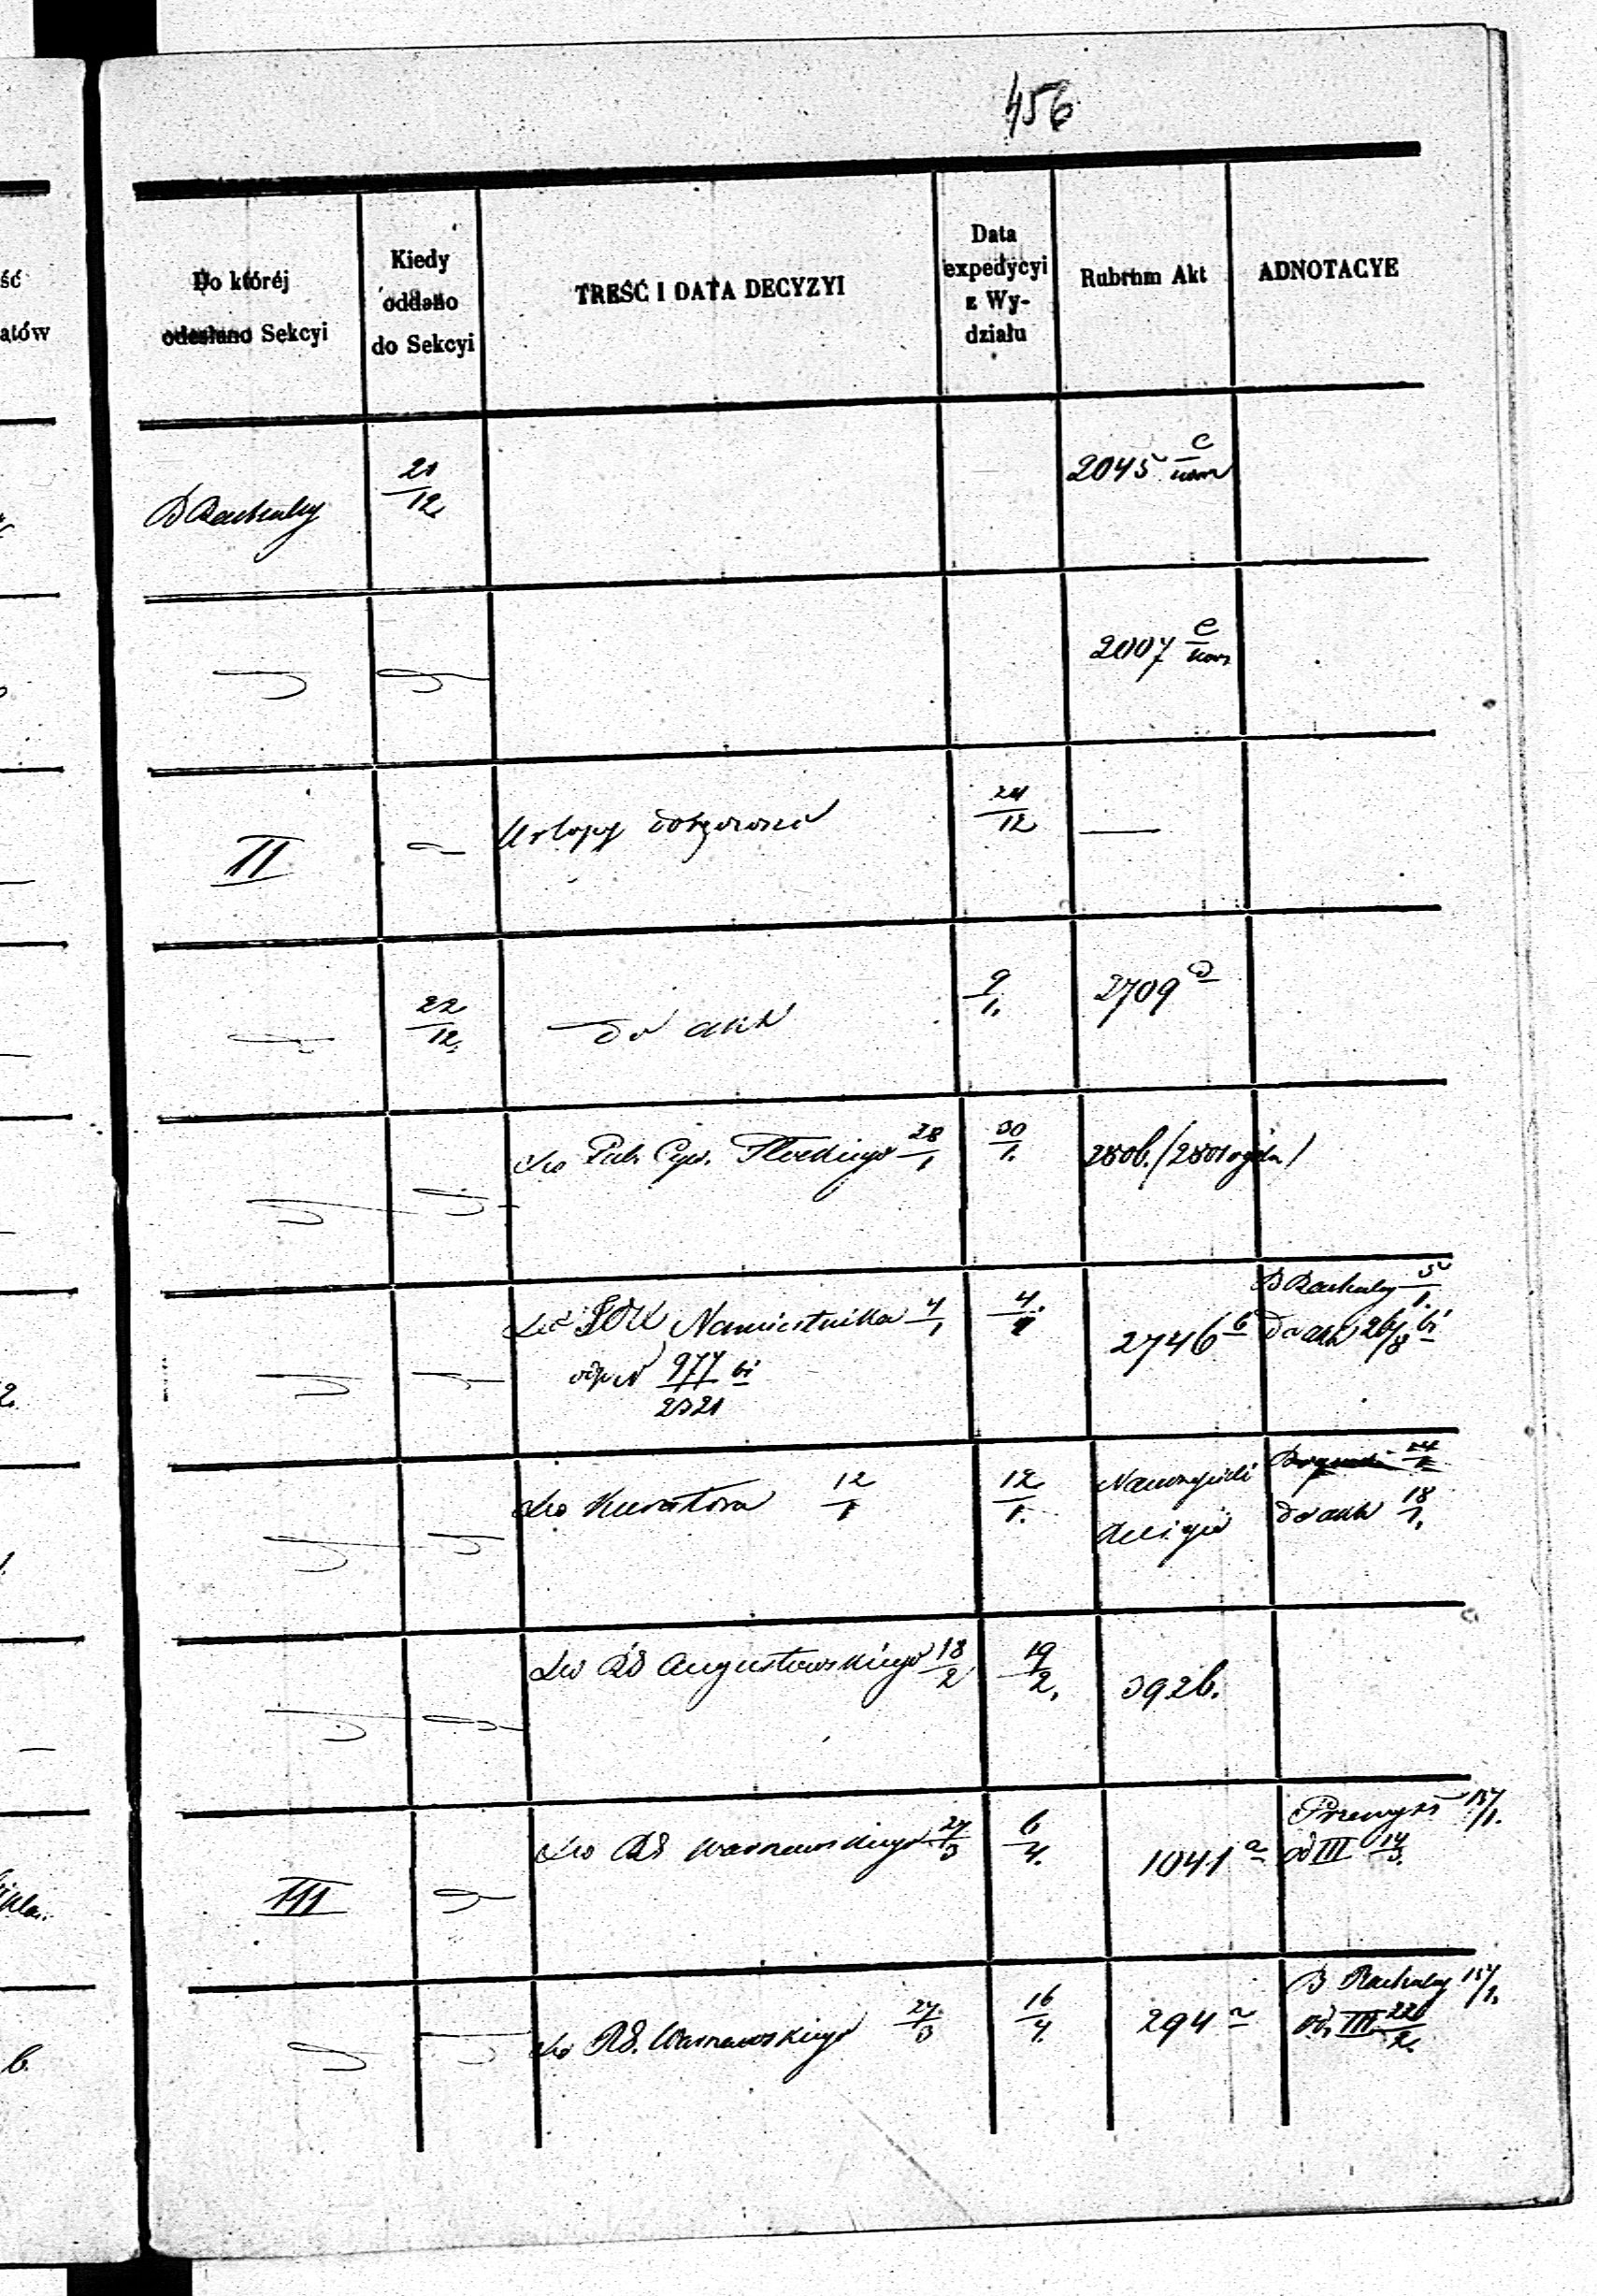 456
ść
atów
Do któréj
odesłano Sekcyi
Kiedy
oddano
do Sekcyi
TREŚĆ I DATA DECYZYI
Data
expedycyi
z Wy-
działu
Rubrum Akt
ADNOTACYE
B Rachuby
21/12
2045 c
2007 e
II
Urlopy
24/12
22/12
do akt
9/1.
2709
Do Gub. Cyw. Płockiego 28/1
30/1.
280b. (2801
Do JOX Namiestnika 4/1
977 bi
2321
4/1
2746 b
B Rachuby 5/1.
Do akt 26/8 bi
Do Kuratora 12/1
12/1.
Do akt 18/1.
Do RG Augustowskiego 18/2
19/2.
392b.
III
Do RG Warszawskiego 27/3
6/4.
1041 a
Przemysł 15/1.
od III 14/3.
Do RG. Warszawskiego 27/3
16/4.
294 a
B Rachuby 15/1.
od III 22/2.
b.